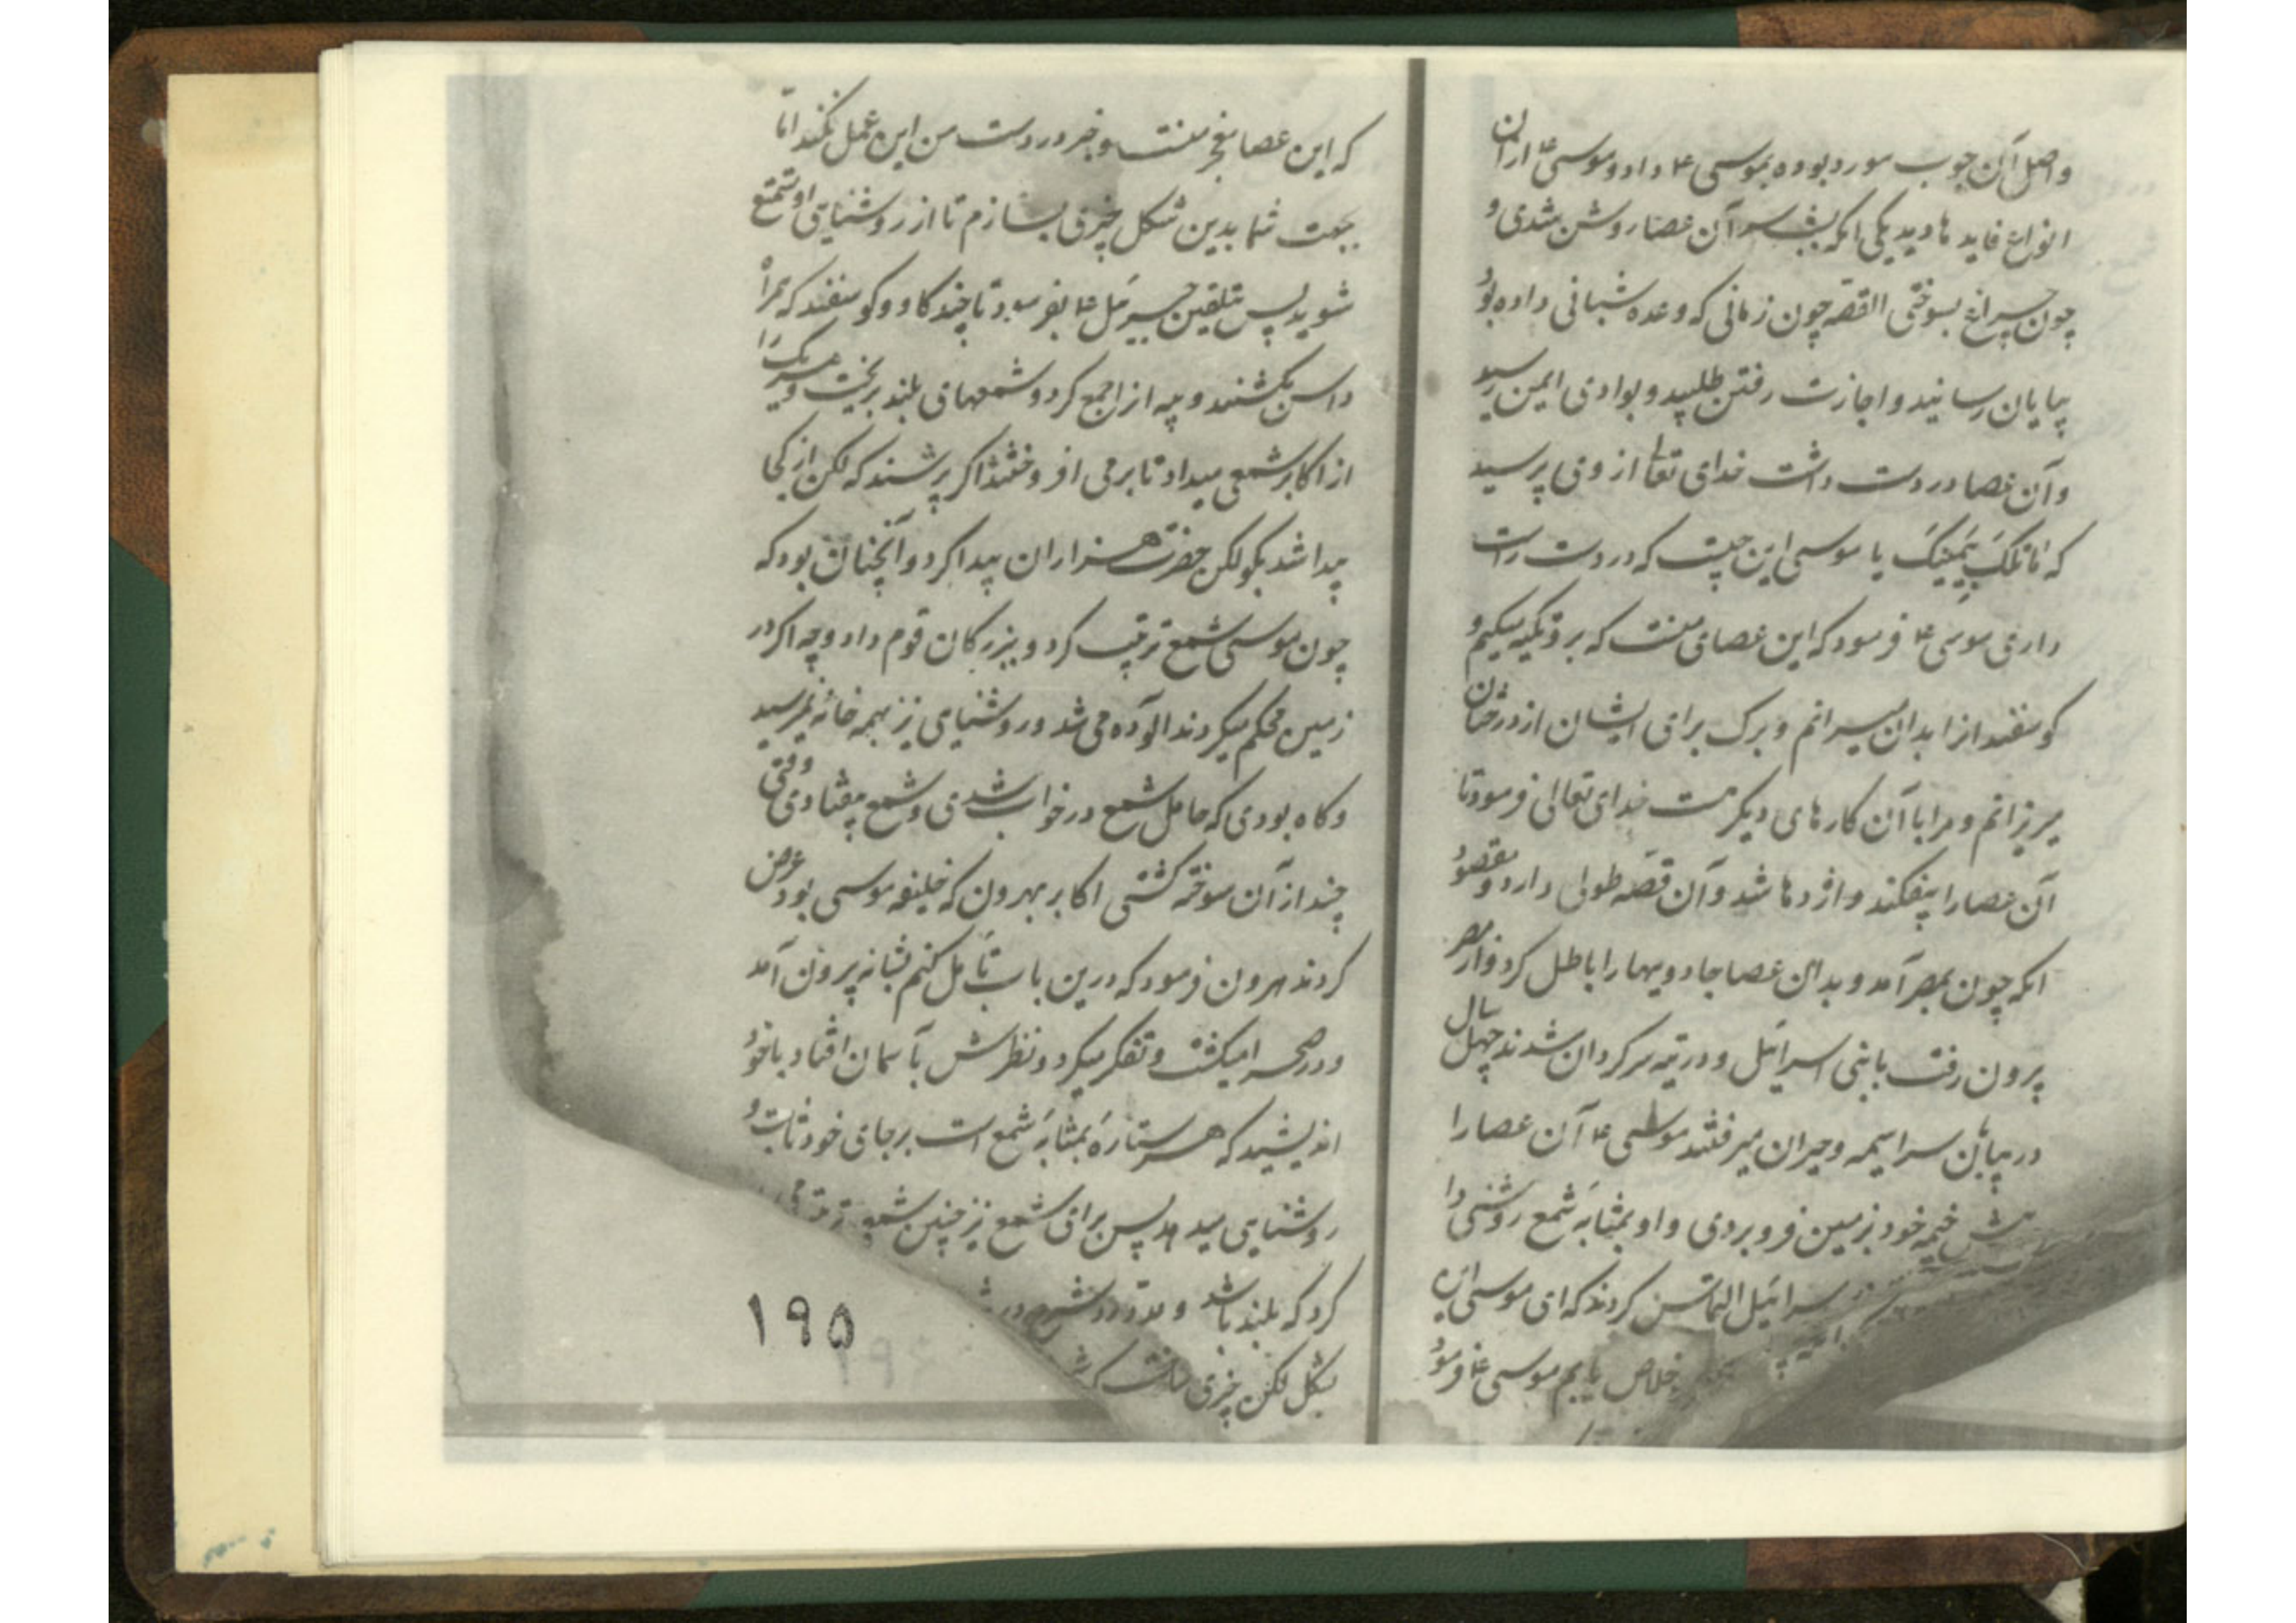 واصل آن چوب مورد بوده بموسی ۴ داد و موسی ۴ ازان
انواع فایدها دید یکی آنکه بشب سر آن عصا روشن شدی و
چون چراغ بسوختی القصه چون زمانی که وعده شبانی داده بود
بپایان رسانید و اجازت رفتن طلبید و بوادی ایمن رسید
و آن عصا در دست داشت خدای تعالی از وی پرسید
که ما تلک بیمینک یا موسی این چیست که در دست راست
داری موسی ۴ فرمود که این عصای منست که برو تکیه میکنم و
کوسفندانرا بدان میرانم و برک برای ایشان از درختان
میریزانم و مرا با آن کارهای دیکر هست خدای تعالی فرمود تا
آن عصا را بیفکند و اژدها شد و آن قصه طولی دارد و مقصود
آنکه چون بمصر آمد و بدان عصا جادویها را باطل کرد و از مصر
بیرون رفت با بنی اسرائیل و در تیه سرکردان شدند چهل سال
در بیابان سراسیمه و حیران میرفتند موسی ۴ آن عصا را
خیمه خود بزمین فرو بردی و او بمثابه شمع روشنی دا
سرائیل التماس کردند که ای موسی
خلاص یابیم موسی ۴ فرمود
که این عصا معجز منست و جز در دست من این عمل نکند اما
بجهت شما بدین شکل چیزی بسازم تا از روشنایی او متمتع
شوید پس بتلقین جبرئیل ۴ بفرمود تا چند کاو و کوسفند که همراه
داشتن بکشتند و پیه ازان جمع کرد و شمعهای بلند بریخت و هر یک را
از اکابر شمعی میداد تا برمی افروختند اکر پرسند که لکن از کجا
پیدا شد بکو لکن حضرت هزاران پیدا کرد و آنچنان بود که
چون موسی شمع ترتیب کرد و ببزرکان قوم داد و چه اکر در
زمین محکم میکردند الوده می شد و روشنایی نیز بهمه خانه نمیرسید
و کاه بودی که حامل شمع در خواب شدی و شمع بیفتادی وقتی
چند از آن سوخته کشتی اکابر بهرون که خلیفه موسی بود عرض
کردند هرون فرمود که درین باب تامل کنم شبانه بیرون آمد
و در صحرا میکشت و تفکر میکرد و نظرش بآسمان افتاد با خود
اندیشید که هر ستاره بمثابه شمع است بر جای خود ثابت و
روشنایی میدهد پس برای شمع نیز چنین
کرد که بلند باشد و
بشکل لکن چیزی ساخت
۱۹۵